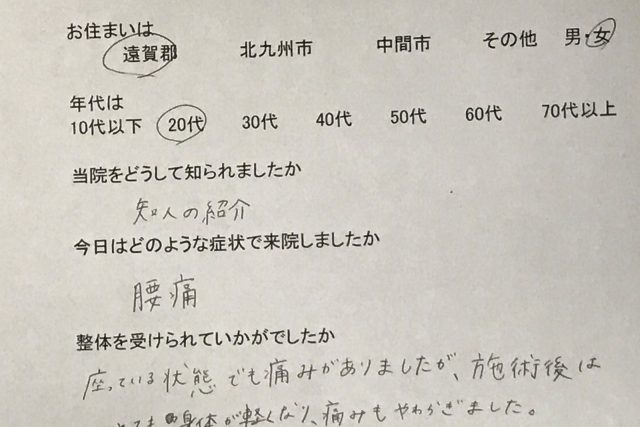 お住まいは
遠賀郡 北九州市 中間市 その他 男・女
年代は
10代以下 20代 30代 40代 50代 60代 70代以上
当院をどうして知られましたか
知人の紹介
今日はどのような症状で来院しましたか
腰痛
整体を受けられていかがでしたか
座っている状態でも痛みがありましたが、施術後は
とても身体が軽くなり、痛みもやわらぎました。